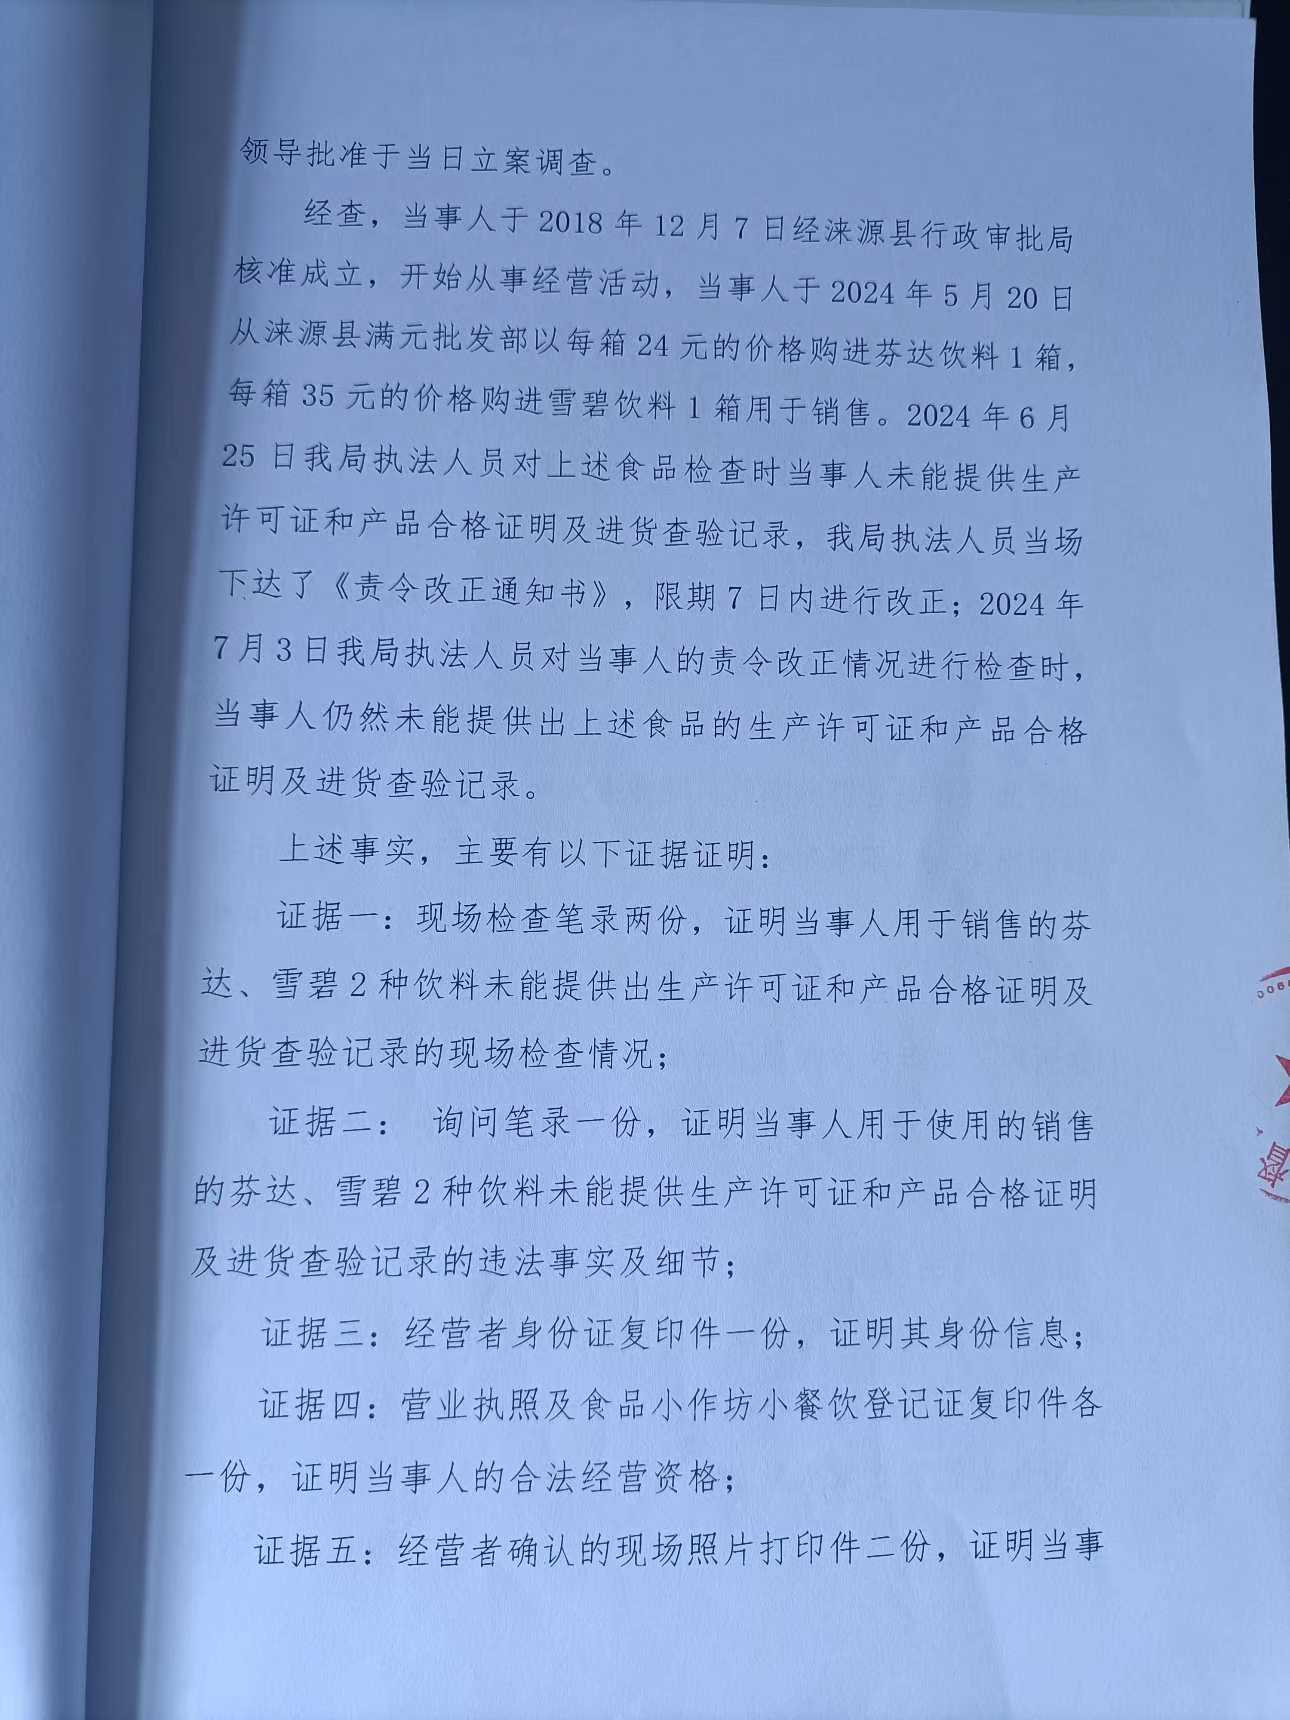 领导批准于当日立案调查。
经查，当事人于 2018 年 12 月 7 日经涞源县行政审批局
核准成立，开始从事经营活动，当事人于 2024 年 5 月 20 日
从涞源县满元批发部以每箱 24 元的价格购进芬达饮料 1 箱，
每箱 35 元的价格购进雪碧饮料 1 箱用于销售。2024 年 6 月
25 日我局执法人员对上述食品检查时当事人未能提供生产
许可证和产品合格证明及进货查验记录，我局执法人员当场
下达了《责令改正通知书》，限期 7 日内进行改正；2024 年
7 月 3 日我局执法人员对当事人的责令改正情况进行检查时，
当事人仍然未能提供出上述食品的生产许可证和产品合格
证明及进货查验记录。
上述事实，主要有以下证据证明：
证据一：现场检查笔录两份，证明当事人用于销售的芬
达、雪碧 2 种饮料未能提供出生产许可证和产品合格证明及
进货查验记录的现场检查情况；
证据二： 询问笔录一份，证明当事人用于使用的销售
的芬达、雪碧 2 种饮料未能提供生产许可证和产品合格证明
及进货查验记录的违法事实及细节；
证据三：经营者身份证复印件一份，证明其身份信息；
证据四：营业执照及食品小作坊小餐饮登记证复印件各
一份，证明当事人的合法经营资格；
证据五：经营者确认的现场照片打印件二份，证明当事